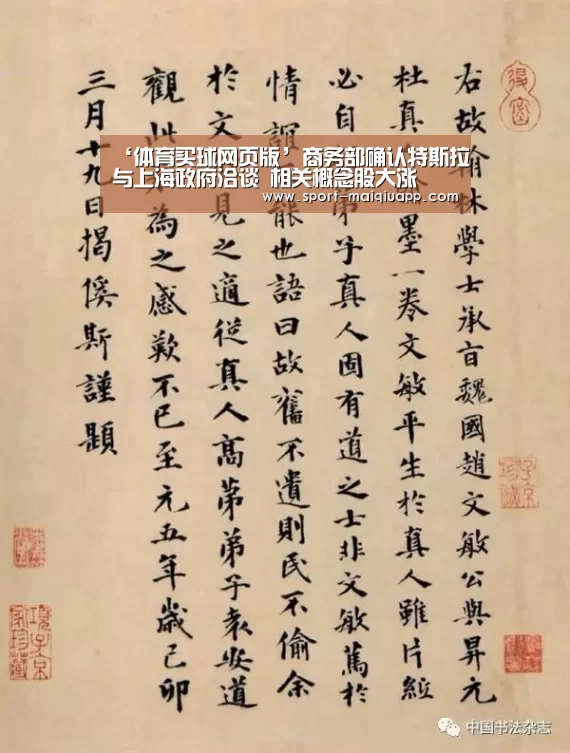 右故翰林學士承旨魏國趙文敏公與昇元
杜真人墨一卷文敏平生於真人雖片紙
必自弟乎真人固有道之士非文敏篤於
情誼能也語曰故舊不遺則民不偷余
於文見之適從真人高第弟子袁安道
觀此為之感歎不已至元五年歲己卯
三月十九日揭傒斯謹題
‘体育买球网页版’商务部确认特斯拉
与上海政府洽谈 相关概念股大涨
www.sport-maiqiuapp.com
項子京家珍藏
中国书法杂志